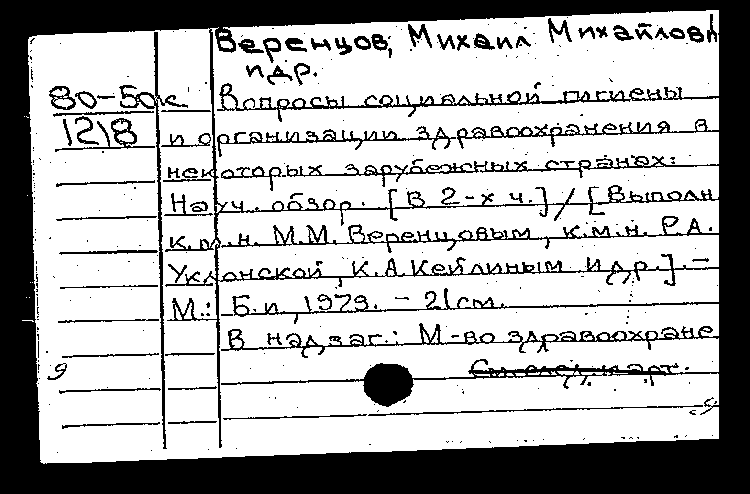 Веренцов, Михаил Михайлович
и др.
80-50к Вопросы социальной гигиены
1218 и организации здравоохранения в
некоторых зарубежных странах:
Науч. обзор. [В 2-х ч.] / [Выполн
к.м.н. М.М. Веренцовым, к.м.н. Р.А.
Уклонской, К.А Кейлиным и др.]. –
М.: Б.и, 1979. – 21см.
В надзаг.: М-во здравоохране
См. след. карт.